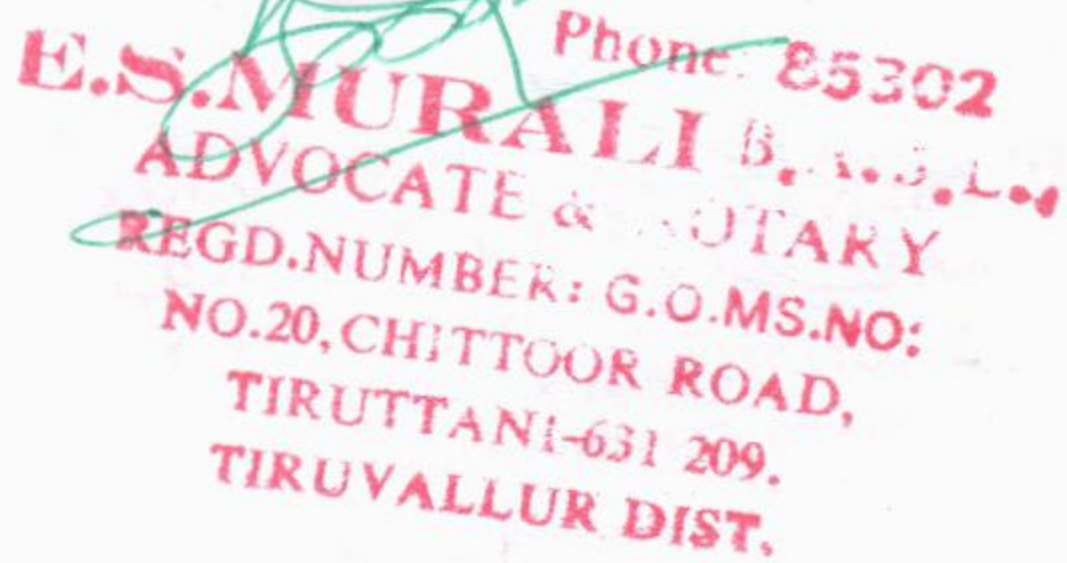 Phone: 85302
E.S.MURALI B.A.B.L.,
ADVOCATE & NOTARY
REGD.NUMBER: G.O.MS.NO:
NO.20, CHITTOOR ROAD,
TIRUTTANI-631 209.
TIRUVALLUR DIST.